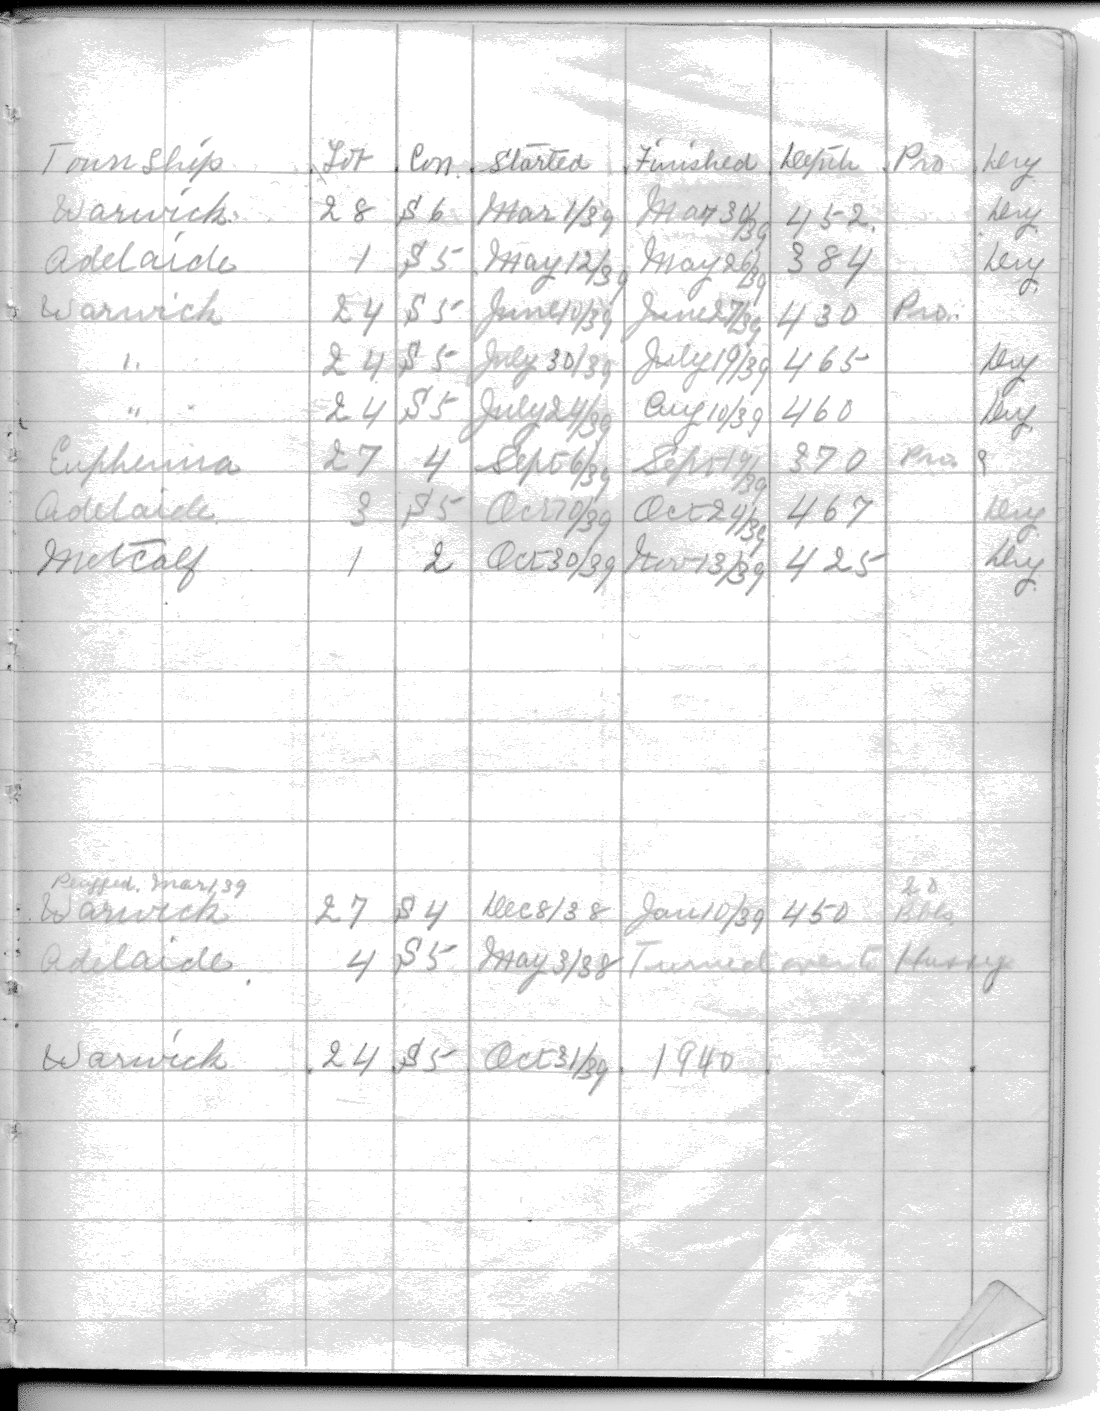 Township Lot Con. Started Finished Depth Pro Dry
Warwick 28 S 6 Mar 1/39 Mar 30/39 452. Dry
Adelaide 1 S 5 May 12/39 May 26/39 384 Dry
Warwick 24 S 5 June 10/39 June 27/39 430 Pro.
" 24 S 5 July 30/39 July 19/39 465 Dry
" " 24 S 5 July 24/39 Aug 10/39 460 Dry
Euphemia 27 4 Sept 6/39 Sept 19/39 370 Pro ?
Adelaide 3 S 5 Oct 10/39 Oct 24/39 467 Dry
Metcalf 1 2 Oct 30/39 Nov 13/39 425 Dry
Plugged. Mar 1, 39
Warwick 27 S 4 Dec 8/38 Jan 10/39 450 20 Bbls.
Adelaide 4 S 5 May 3/38 Turned over to Hussey
Warwick 24 S 5 Oct 31/39 1940